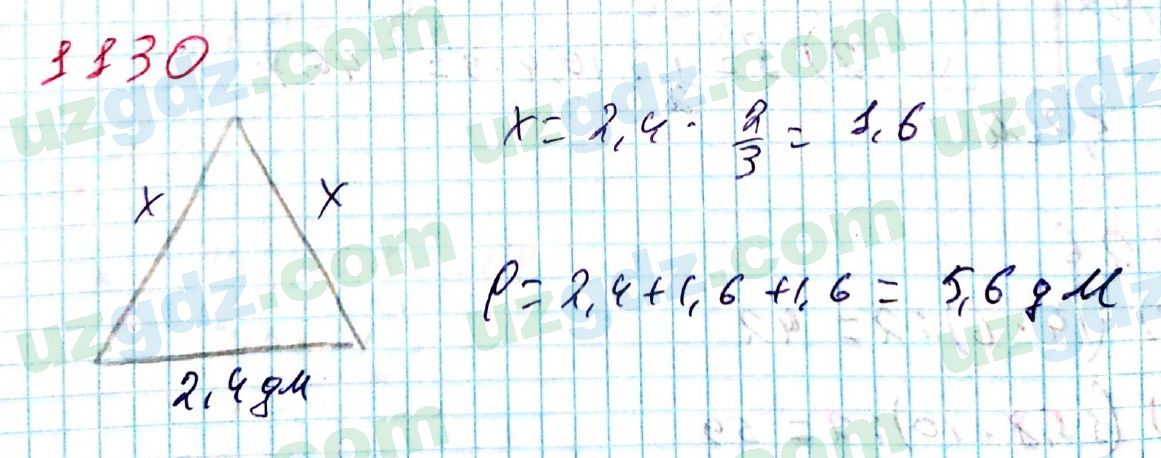 1130
x = 2,4 · 2/3 = 1,6
x x
P = 2,4 + 1,6 + 1,6 = 5,6 дм
2,4 дм
uzgdz.com
uzgdz.com
uzgdz.com
uzgdz.com
uzgdz.com
uzgdz.com
uzgdz.com
uzgdz.com